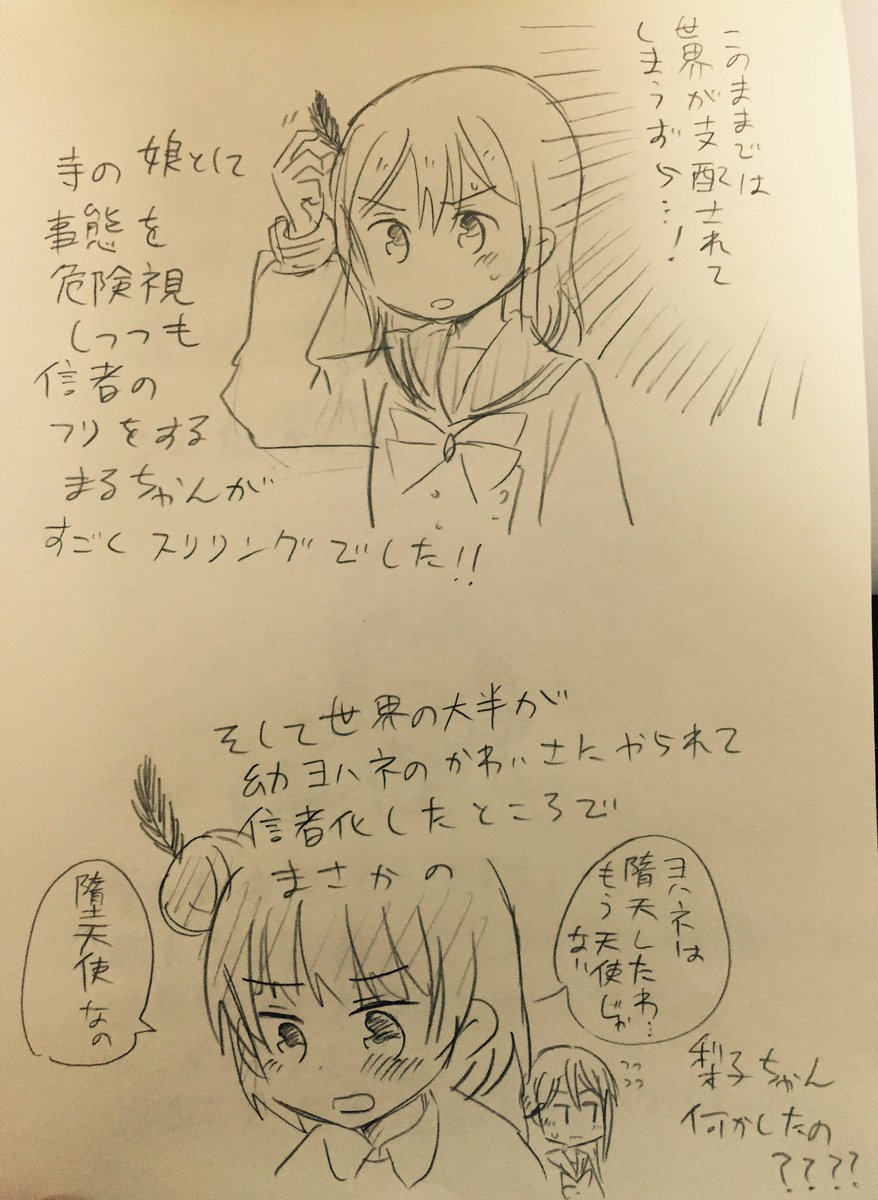 このままでは
世界が支配されて
しまうずら…!
寺の娘として
事態を
危険視
しつつも
信者の
フリをする
まるちゃんが
すごくスリリングでした!!
そして世界の大半が
幼ヨハネのかわいさにやられて
信者化したところで
まさかの
ヨハネは
堕天したわ…
もう天使じゃ
ない
堕天使なの
梨子ちゃん
何かしたの
????